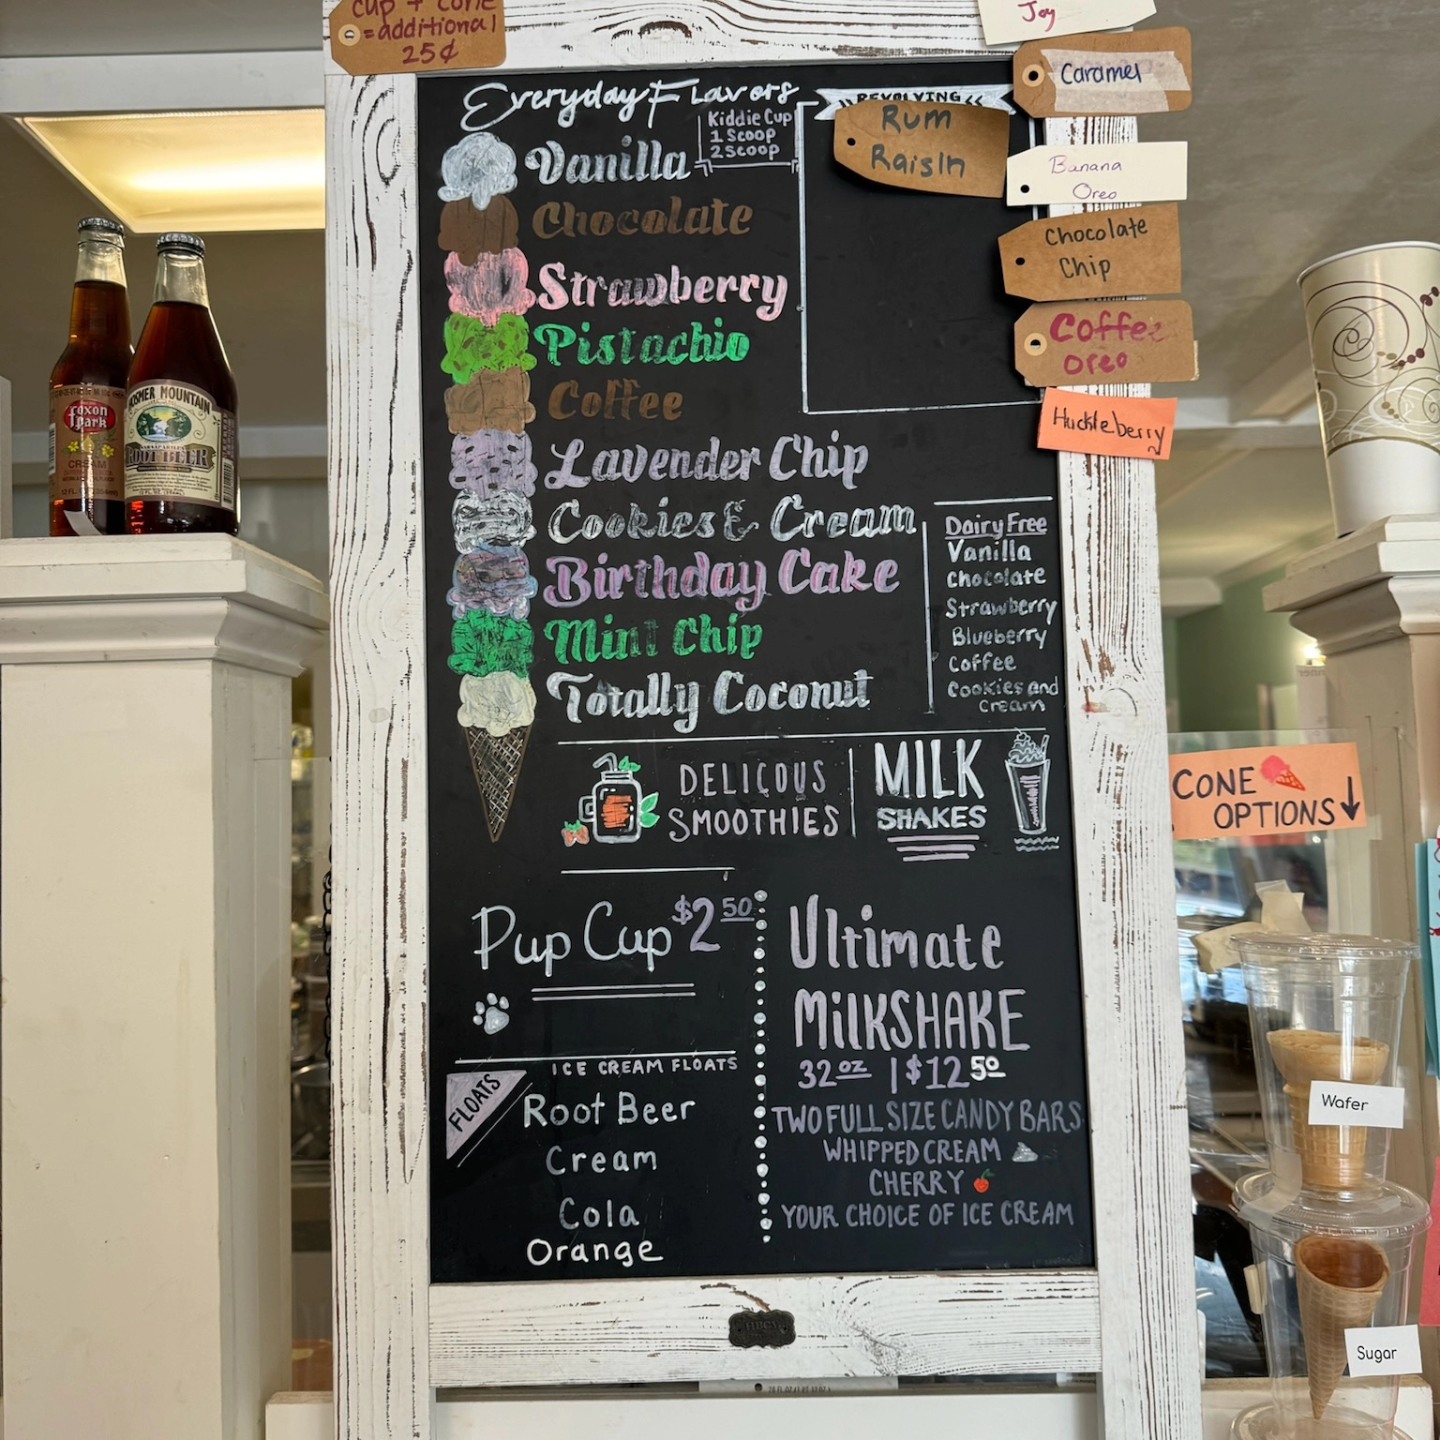 cup + cone
= additional
25¢
Joy
Caramel
Banana
Oreo
Chocolate
Chip
Coffee
Oreo
Huckleberry
Everyday Flavors
Kiddie Cup
1 Scoop
2 Scoop
REVOLVING
Rum
Raisin
Vanilla
Chocolate
Strawberry
Pistachio
Coffee
Lavender Chip
Cookies & Cream
Birthday Cake
Mint Chip
Totally Coconut
Dairy Free
Vanilla
Chocolate
Strawberry
Blueberry
Coffee
Cookies and
Cream
DELICOUS
SMOOTHIES
MILK
SHAKES
Pup Cup $2 50
ICE CREAM FLOATS
FLOATS
Root Beer
Cream
Cola
Orange
Ultimate
MilKSHAKE
32 oz | $12 50
TWO FULL SIZE CANDY BARS
WHIPPED CREAM
CHERRY
YOUR CHOICE OF ICE CREAM
foxon
park
CREAM
HOSMER MOUNTAIN
ROOT BEER
CONE
OPTIONS
Wafer
Sugar